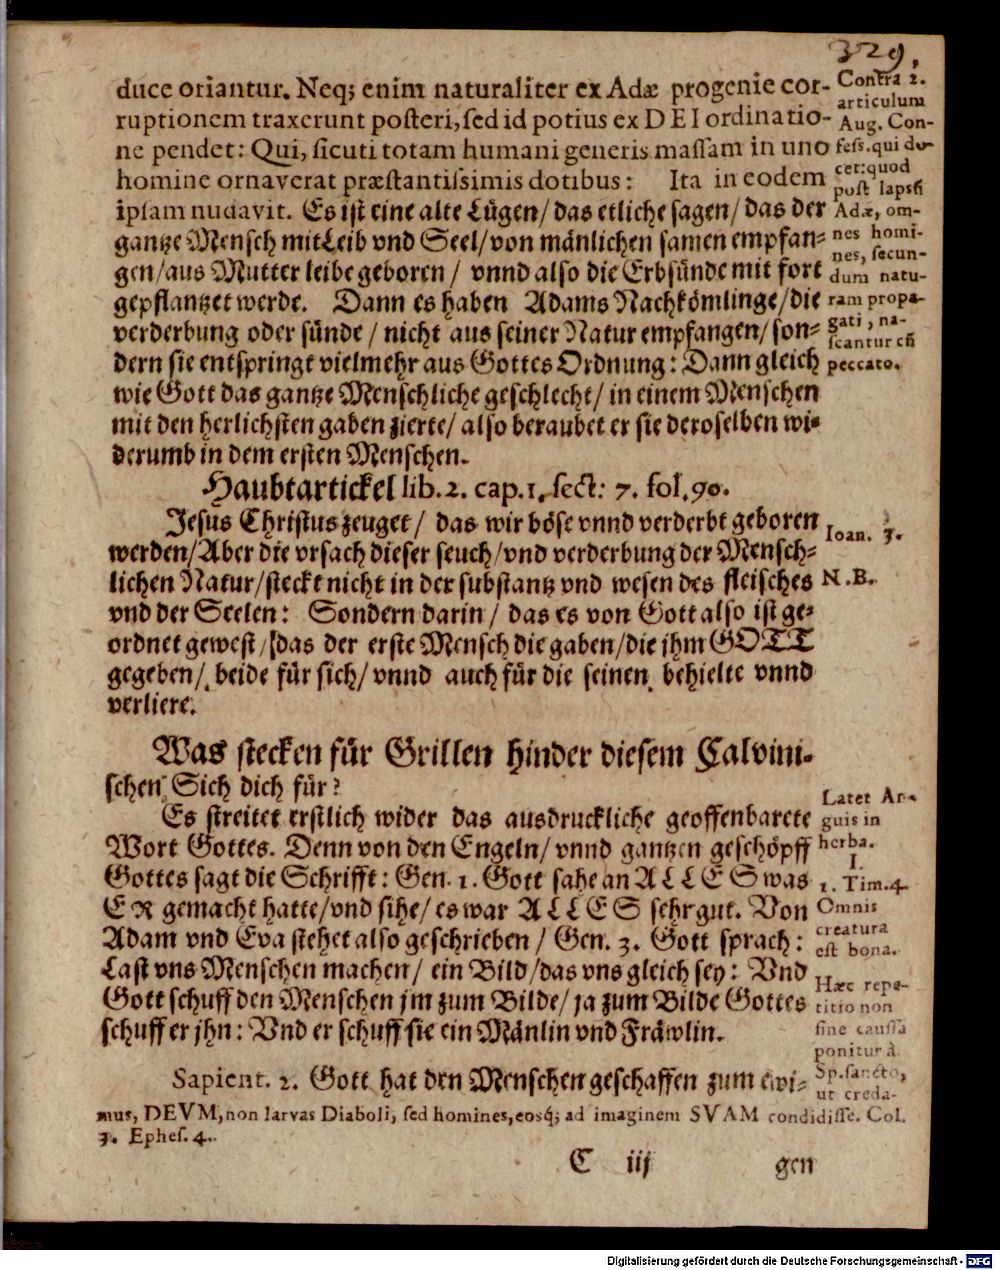 329.
duce oriantur. Neq; enim naturaliter ex Adæ progenie cor-
ruptionem traxerunt posteri, sed id potius ex DEI ordinatio-
ne pendet: Qui, sicuti totam humani generis massam in uno
homine ornaverat præstantissimis dotibus: Ita in eodem
ipsam nudavit. Es ist eine alte Lügen/ das etliche sagen/ das der
gantze Mensch mit Leib vnd Seel/ von mänlichen samen empfan-
gen/ aus Mutter leibe geboren/ vnnd also die Erbsünde mit fort
gepflantzet werde. Dann es haben Adams Nachkömlinge/ die
verderbung oder sünde/ nicht aus seiner Natur empfangen/ son-
dern sie entspringt vielmehr aus Gottes Ordnung: Dann gleich
wie Gott das gantze Menschliche geschlecht/ in einem Menschen
mit den herlichsten gaben zierte/ also beraubet er sie deroselben wi-
derumb in dem ersten Menschen.
Contra 2.
articulum
Aug. Con-
fess. qui do-
cet: quod
post lapsũ
Adæ, om-
nes homi-
nes, secun-
dum natu-
ram propa-
gati, na-
scantur cũ
peccato.
Haubtartickel lib. 2. cap. 1. sect: 7. fol. 90.
Jesus Christus zeuget/ das wir böse vnnd verderbt geboren
werden/ Aber die vrsach dieser seuch/ vnd verderbung der Mensch-
lichen Natur/ steckt nicht in der substantz vnd wesen des fleisches
vnd der Seelen: Sondern darin/ das es von Gott also ist ge-
ordnet gewest/ das der erste Mensch die gaben/ die ihm GOTT
gegeben/ beide für sich/ vnnd auch für die seinen behielte vnnd
verliere.
Ioan. 3.
N. B.
Was stecken für Grillen hinder diesem Calvini-
schen Sich dich für?
Es streitet erstlich wider das ausdruckliche geoffenbarete
Wort Gottes. Denn von den Engeln/ vnnd gantzen geschöpff
Gottes sagt die Schrifft: Gen. 1. Gott sahe an ALLES was
ER gemacht hatte/ vnd sihe/ es war ALLES sehr gut. Von
Adam vnd Eva stehet also geschrieben/ Gen. 3. Gott sprach:
Last vns Menschen machen/ ein Bild/ das vns gleich sey: Vnd
Gott schuff den Menschen jm zum Bilde/ ja zum Bilde Gottes
schuff er jhn: Vnd er schuff sie ein Mänlin vnd Fräwlin.
Sapient. 2. Gott hat den Menschen geschaffen zum ewi-
Latet An-
guis in
herba.
I.
1. Tim. 4.
Omnis
creatura
est bona.
Hæc repe-
titio non
sine caussa
ponitur à
Sp. sancto,
ut creda-
mus, DEVM, non larvas Diaboli, sed homines, eosq; ad imaginem SVAM condidisse. Col.
3. Ephes. 4.
C iij gen
Digitalisierung gefördert durch die Deutsche Forschungsgemeinschaft - DFG